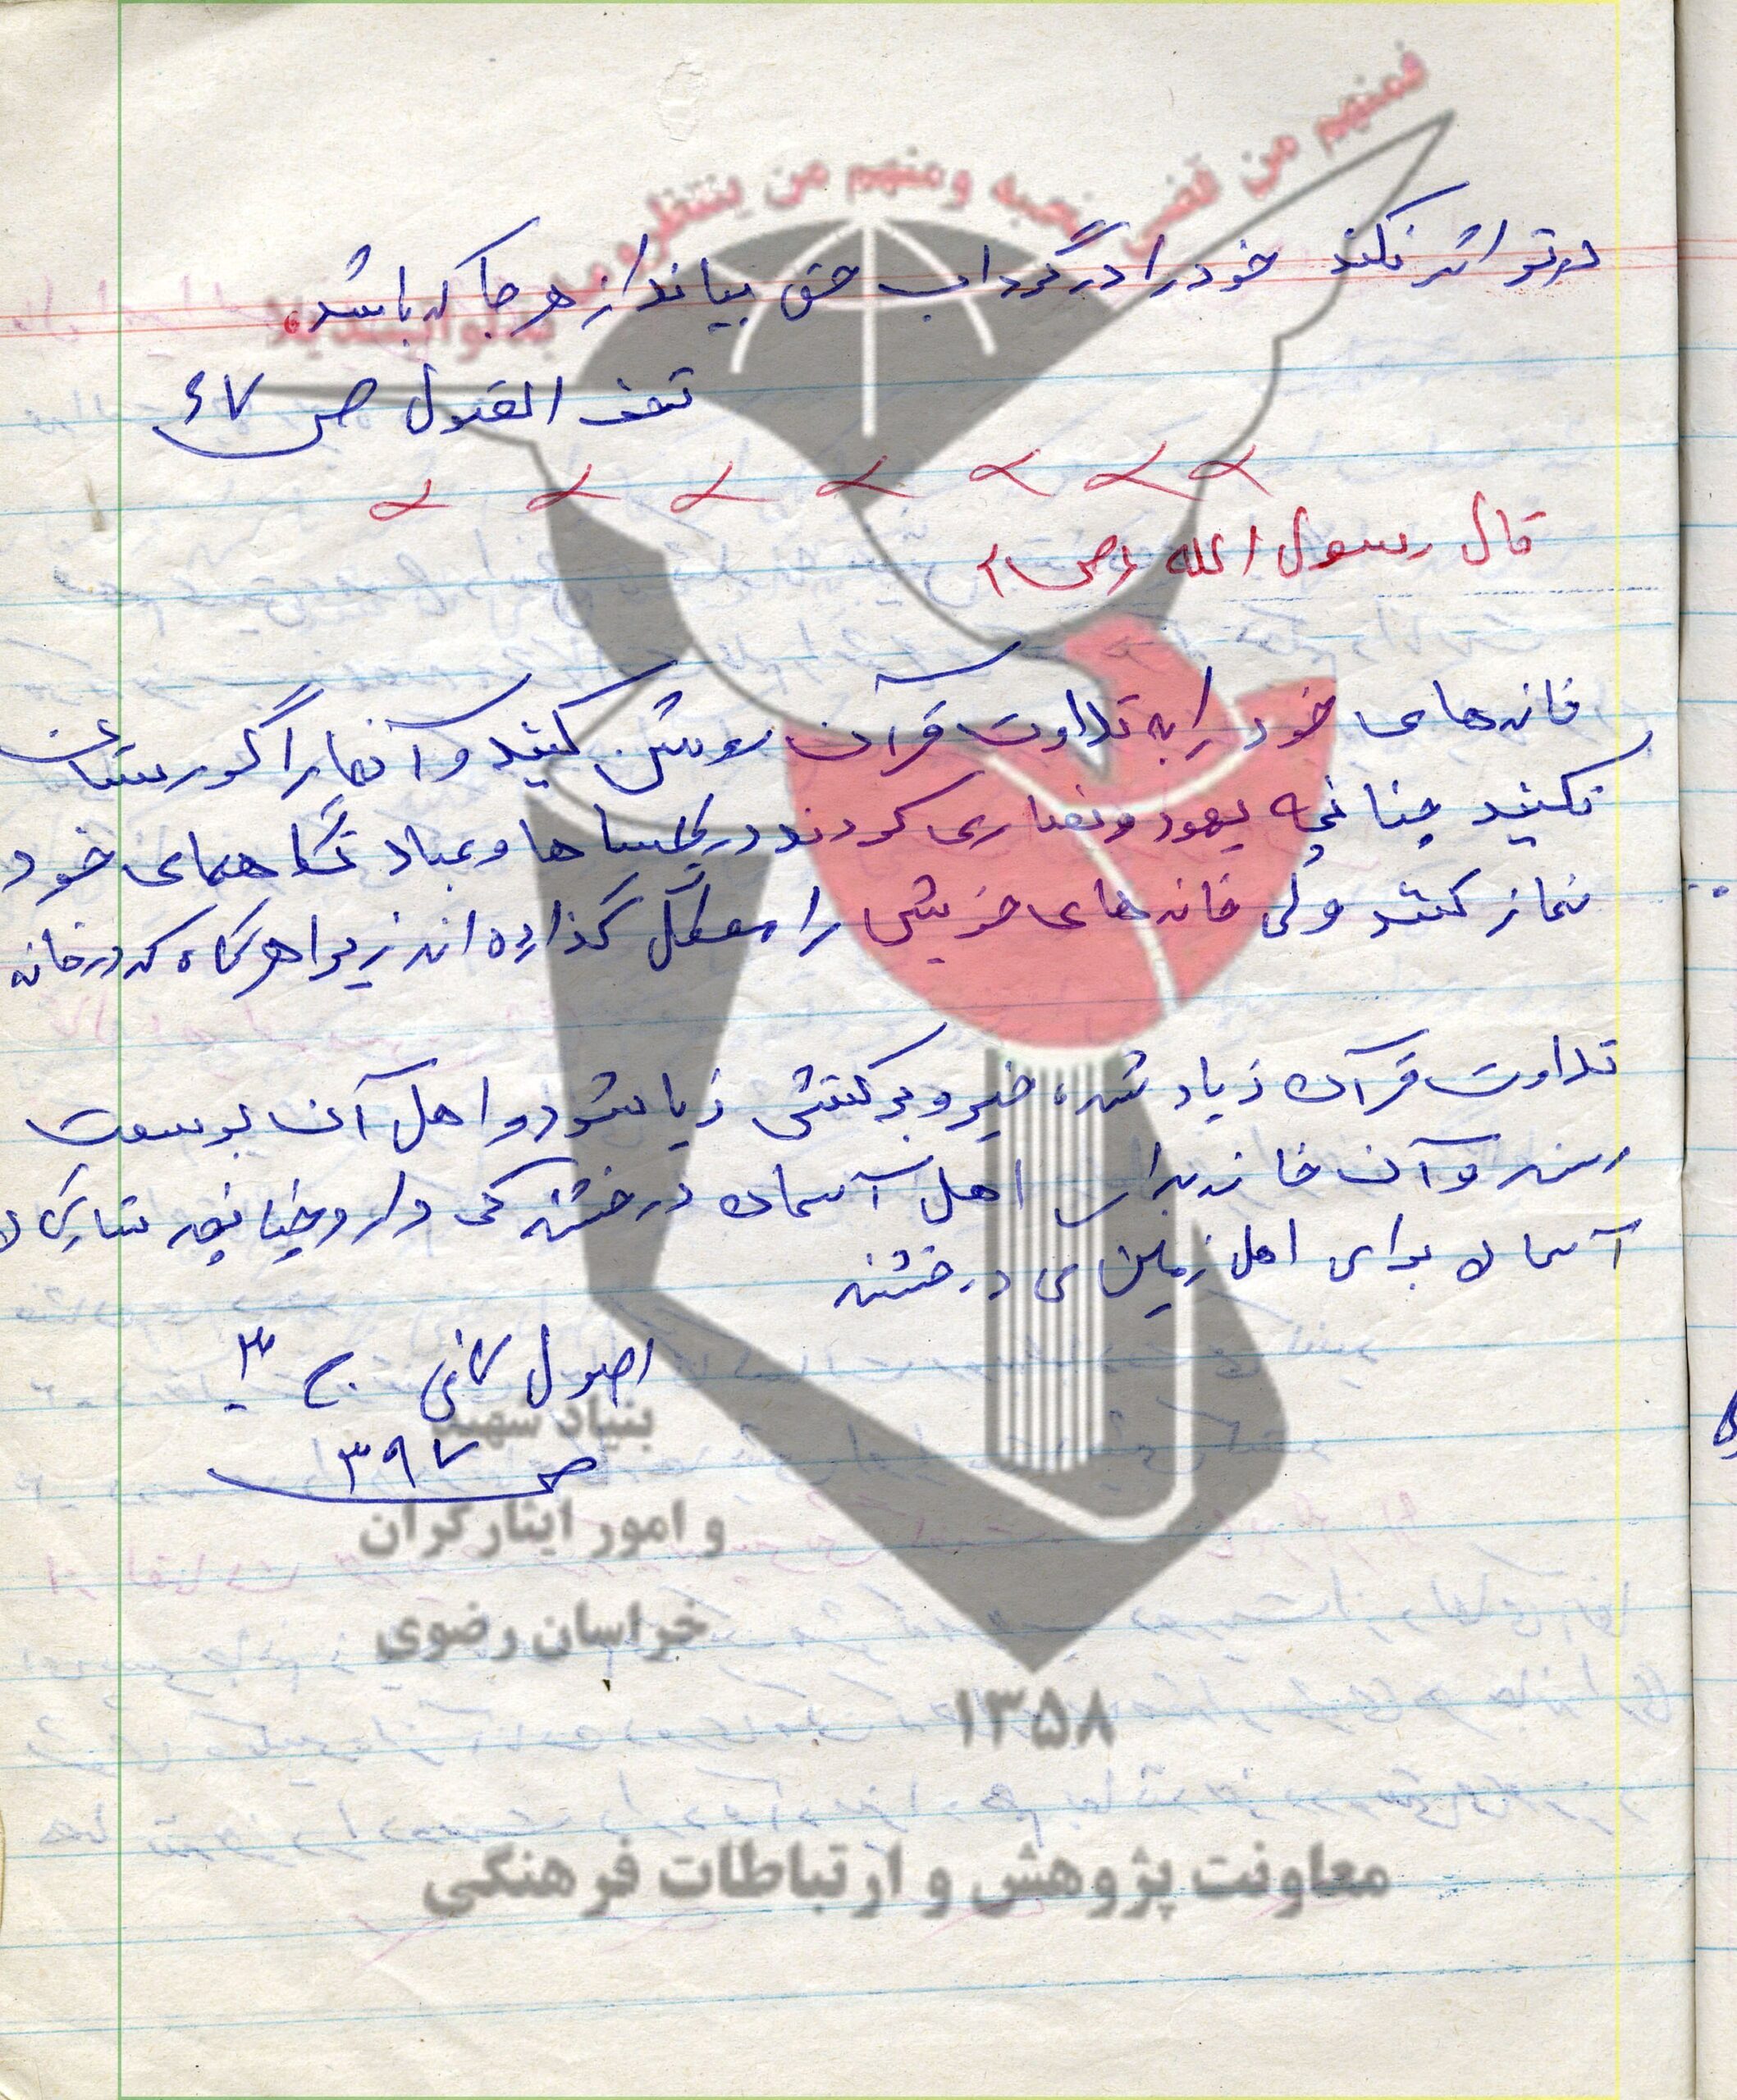 فمنهم من قضی نحبه ومنهم من ینتظر وما بدلوا تبدیلا
در تو اثر نکند خود را در گرداب حق بیانداز هر جا که باشد.
تحف العقول ص ۶۷
قال رسول الله (ص)
خانه های خود را به تلاوت قرآن روشن کنید و آنها را گورستان
نکنید چنانچه یهود و نصاری کردند در کلیساها و عبادتگاههای خود
نماز کنند ولی خانه های خویش را معطل گذارده اند زیرا هرگاه که در خانه
تلاوت قرآن زیاد شد، خیر و برکتش زیا شود و اهل آن بوسعت
رسند و آن خانه برای اهل آسمان درخشندگی دارد چنانچه ستارگان
آسمان برای اهل زمین می درخشند
اصول کافی ج ۳
ص ۳۹۷
بنیاد شهید
و امور ایثارگران
خراسان رضوی
۱۳۵۸
معاونت پژوهش و ارتباطات فرهنگی